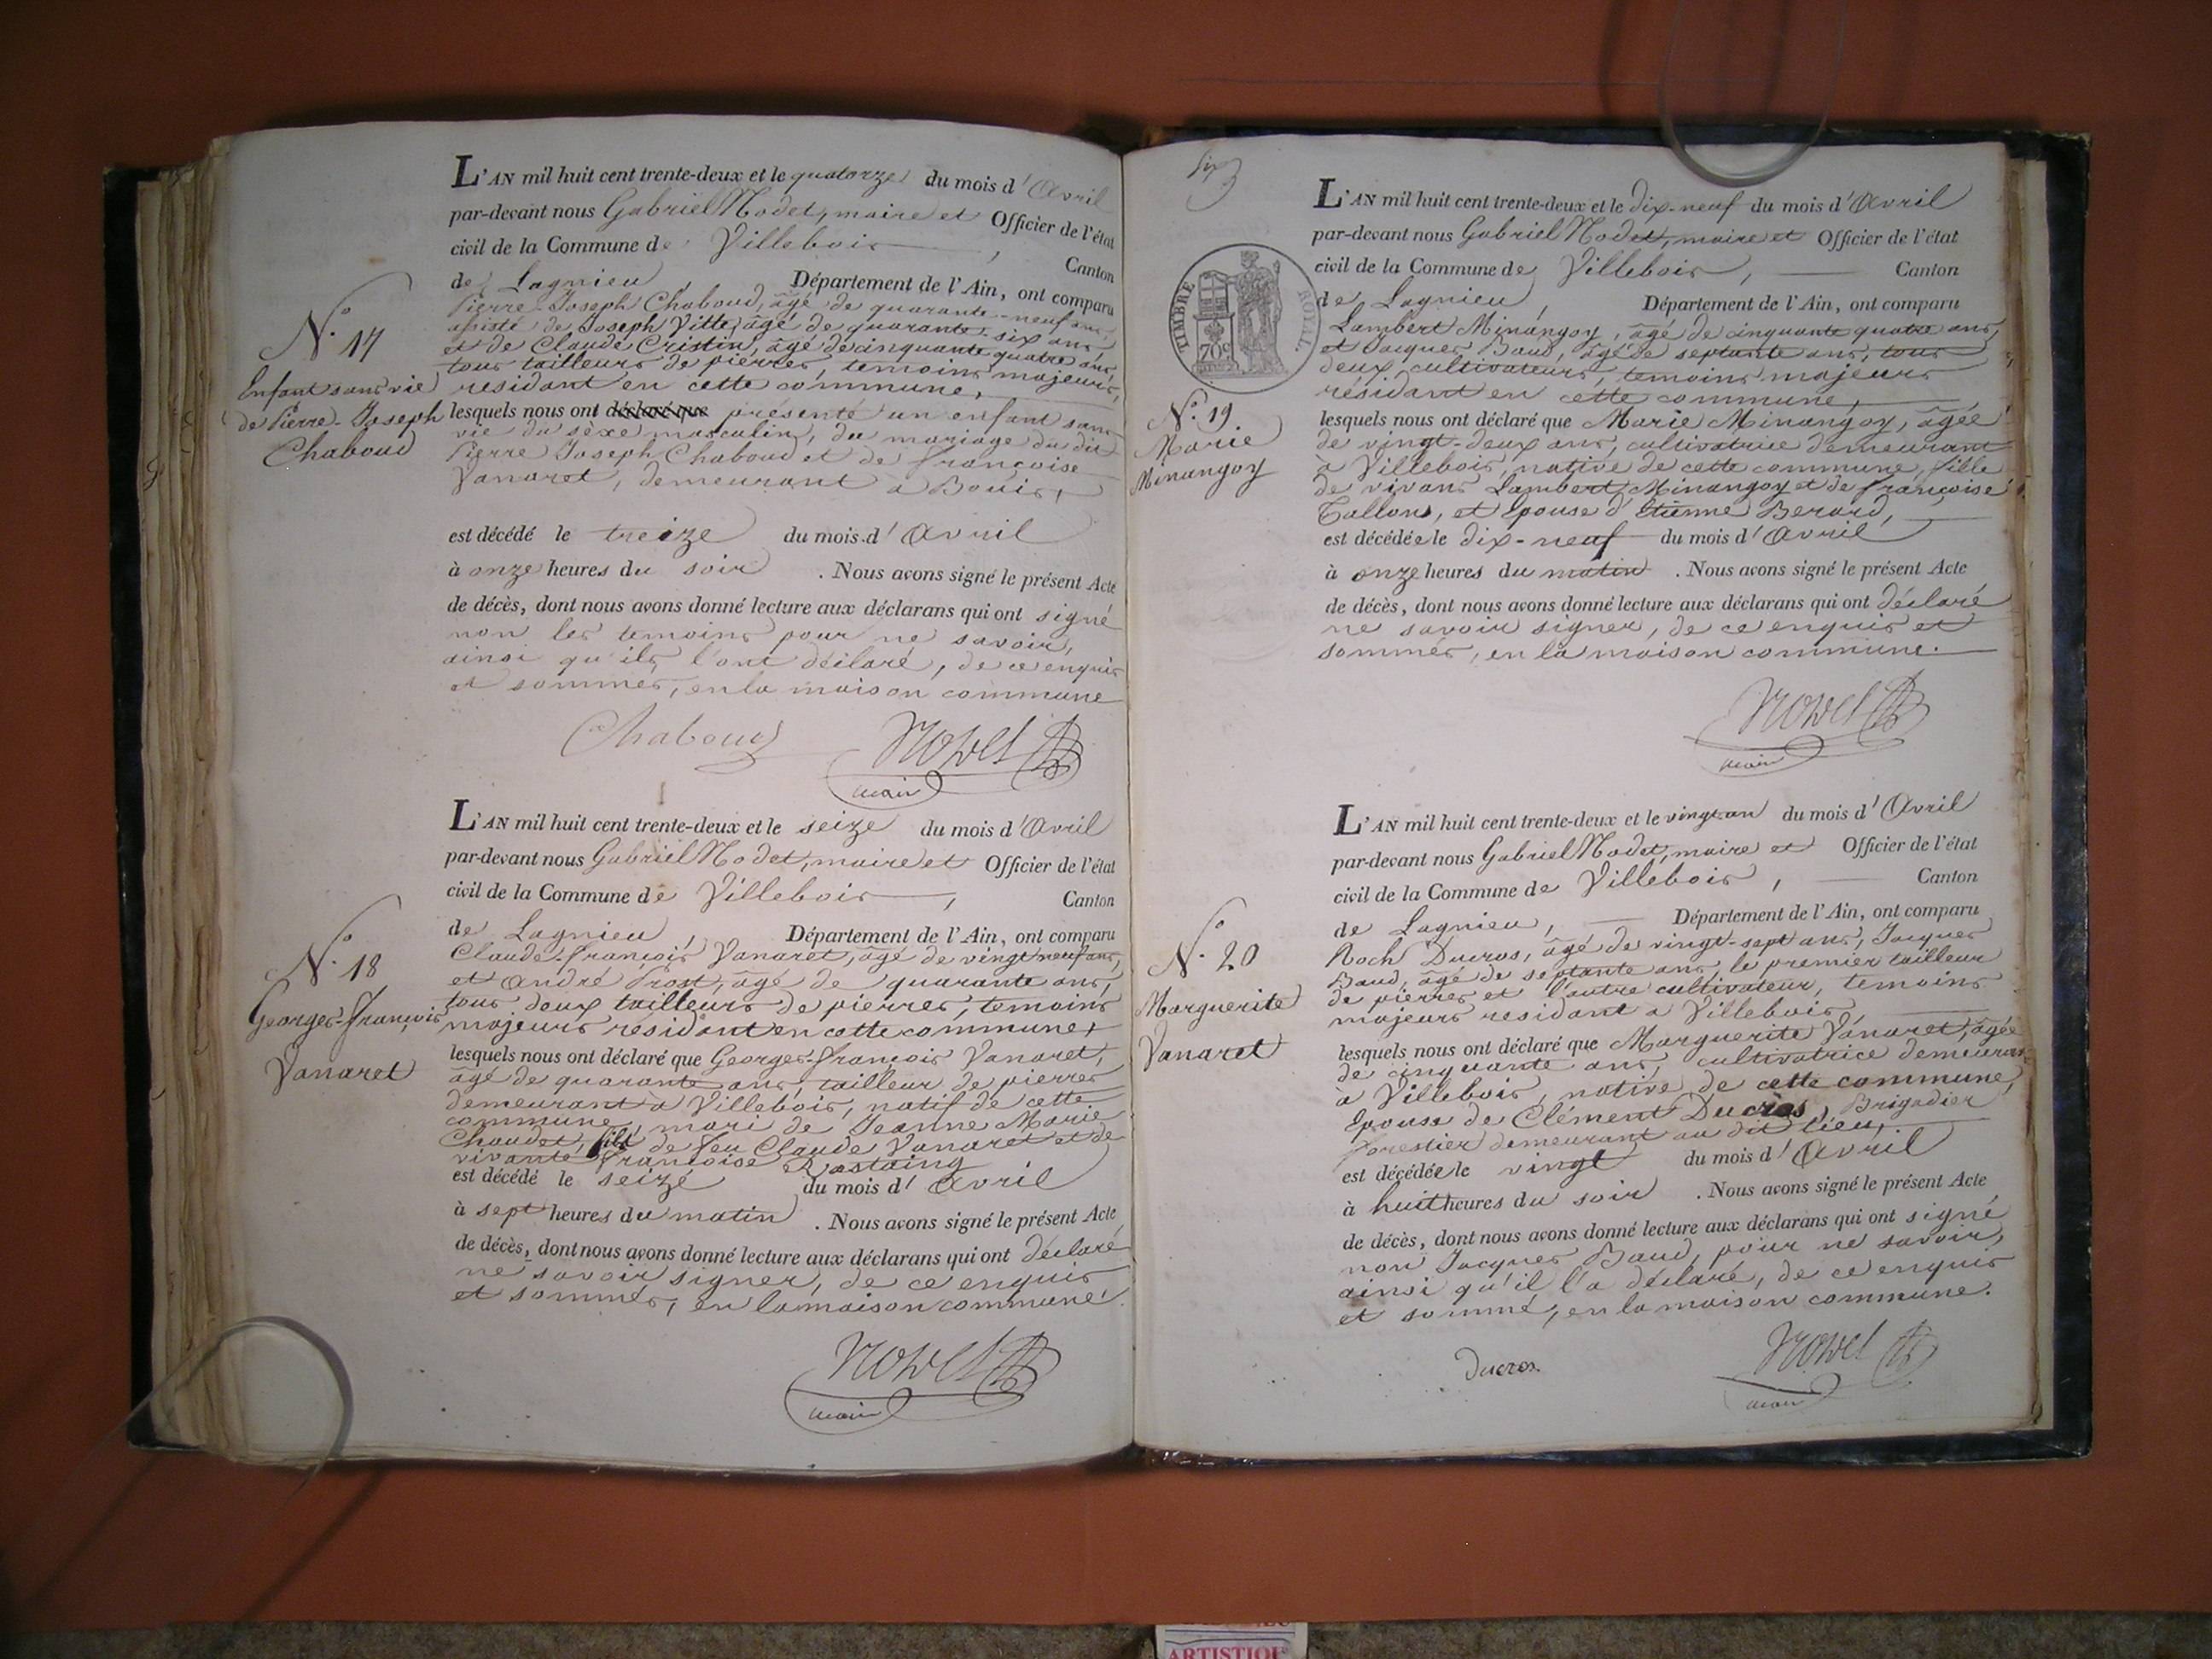 L'AN mil huit cent trente-deux et le quatorze du mois d'Avril
par-devant nous Gabriel Nodet, maire et Officier de l'état
civil de la Commune de Villebois, Canton
de Lagnieu, Département de l'Ain, ont comparu
Pierre-Joseph Chaboud, âgé de quarante-neuf ans,
assisté de Joseph Ville, âgé de quarante-six ans,
et de Claude Cristin, âgé de cinquante quatre ans,
tous tailleurs de pierres, temoins majeurs,
residant en cette commune,
N.° 17
Enfant sans vie
de Pierre-Joseph
Chaboud
lesquels nous ont déclaré que présenté un enfant sans
vie du sèxe masculin, du mariage du dit
Pierre Joseph Chaboud et de françoise
Vanaret, demeurant à Bouis,
est décédé le treize du mois d'Avril
à onze heures du soir. Nous avons signé le présent Acte
de décès, dont nous avons donné lecture aux déclarans qui ont signé
non les temoins pour ne savoir,
ainsi qu'ils l'ont déclaré, de ce enquis
et sommés, en la maison commune
Chaboud Nodet
maire
L'AN mil huit cent trente-deux et le seize du mois d'Avril
par-devant nous Gabriel Nodet, maire et Officier de l'état
civil de la Commune de Villebois, Canton
de Lagnieu, Département de l'Ain, ont comparu
Claude-françois Vanaret, âgé de vingt neuf ans,
et André Prost, âgé de quarante ans,
tous deux tailleurs de pierres, temoins
majeurs residant en cette commune,
N.° 18
Georges-françois
Vanaret
lesquels nous ont déclaré que Georges-françois Vanaret,
âgé de quarante ans, tailleur de pierres
demeurant à Villebois, natif de cette
commune, mari de Jeanne Marie
Chaudet, fils de feu Claude Vanaret et de
vivante françoise Rostaing
est décédé le seize du mois d'Avril
à sept heures du matin. Nous avons signé le présent Acte
de décès, dont nous avons donné lecture aux déclarans qui ont déclaré
ne savoir signer, de ce enquis
et sommés, en la maison commune.
Nodet
maire
Six
TIMBRE ROYAL.
70c
L'AN mil huit cent trente-deux et le dix-neuf du mois d'Avril
par-devant nous Gabriel Nodet, maire et Officier de l'état
civil de la Commune de Villebois, Canton
de Lagnieu, Département de l'Ain, ont comparu
Lambert Minangoy, âgé de cinquante quatre ans,
et Jacques Baud, âgé de septante ans, tous
deux cultivateurs, temoins majeurs
résidant en cette commune,
N.° 19.
Marie
Minangoy
lesquels nous ont déclaré que Marie Minangoy, âgée
de vingt-deux ans, cultivatrice demeurant
à Villebois, native de cette commune, fille
de vivans Lambert Minangoy et de françoise
Tallon, et Epouse d'Etienne Berard,
est décédée le dix-neuf du mois d'Avril
à onze heures du matin. Nous avons signé le présent Acte
de décès, dont nous avons donné lecture aux déclarans qui ont déclaré
ne savoir signer, de ce enquis et
sommés, en la maison commune.
Nodet
maire
L'AN mil huit cent trente-deux et le vingt-un du mois d'Avril
par-devant nous Gabriel Nodet, maire et Officier de l'état
civil de la Commune de Villebois, Canton
de Lagnieu, Département de l'Ain, ont comparu
Roch Ducros, âgé de vingt-sept ans, Jacques
Baud, âgé de septante ans, le premier tailleur
de pierres et l'autre cultivateur, temoins
majeurs residant à Villebois,
N.° 20
Marguerite
Vanaret
lesquels nous ont déclaré que Marguerite Vanaret, âgée
de cinquante ans, cultivatrice demeurant
à Villebois, native de cette commune,
Epouse de Clément Ducros, Brigadier
forestier demeurant au dit lieu,
est décédée le vingt du mois d'Avril
à huit heures du soir. Nous avons signé le présent Acte
de décès, dont nous avons donné lecture aux déclarans qui ont signé
non Jacques Baud, pour ne savoir,
ainsi qu'il l'a déclaré, de ce enquis
et sommé, en la maison commune.
Ducros Nodet
maire
ARTISTIQUE